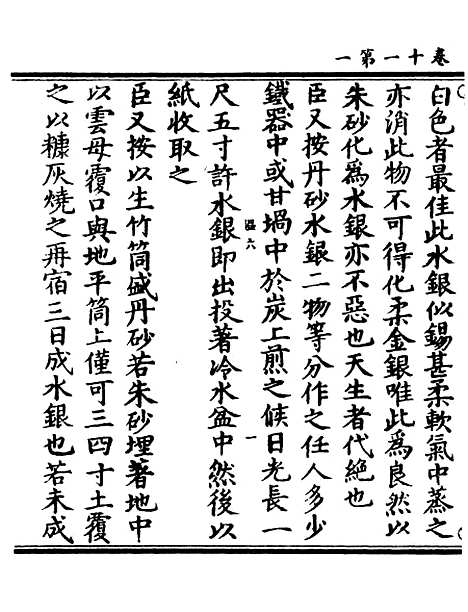 卷十一第一
白色者最佳此水銀似錫甚柔軟氣中蒸之
亦消此物不可得化柔金銀唯此爲良然以
朱砂化爲水銀亦不惡也天生者代絶也
臣又按丹砂水銀二物等分作之任人多少
鐵器中或甘堝中於炭上煎之候日光長一
尺五寸許水銀即出投著冷水盆中然後以
紙收取之
臣又按以生竹筒盛丹砂若朱砂埋著地中
以雲母覆口與地平筒上僅可三四寸土覆
之以糠灰燒之再宿三日成水銀也若未成
六
一